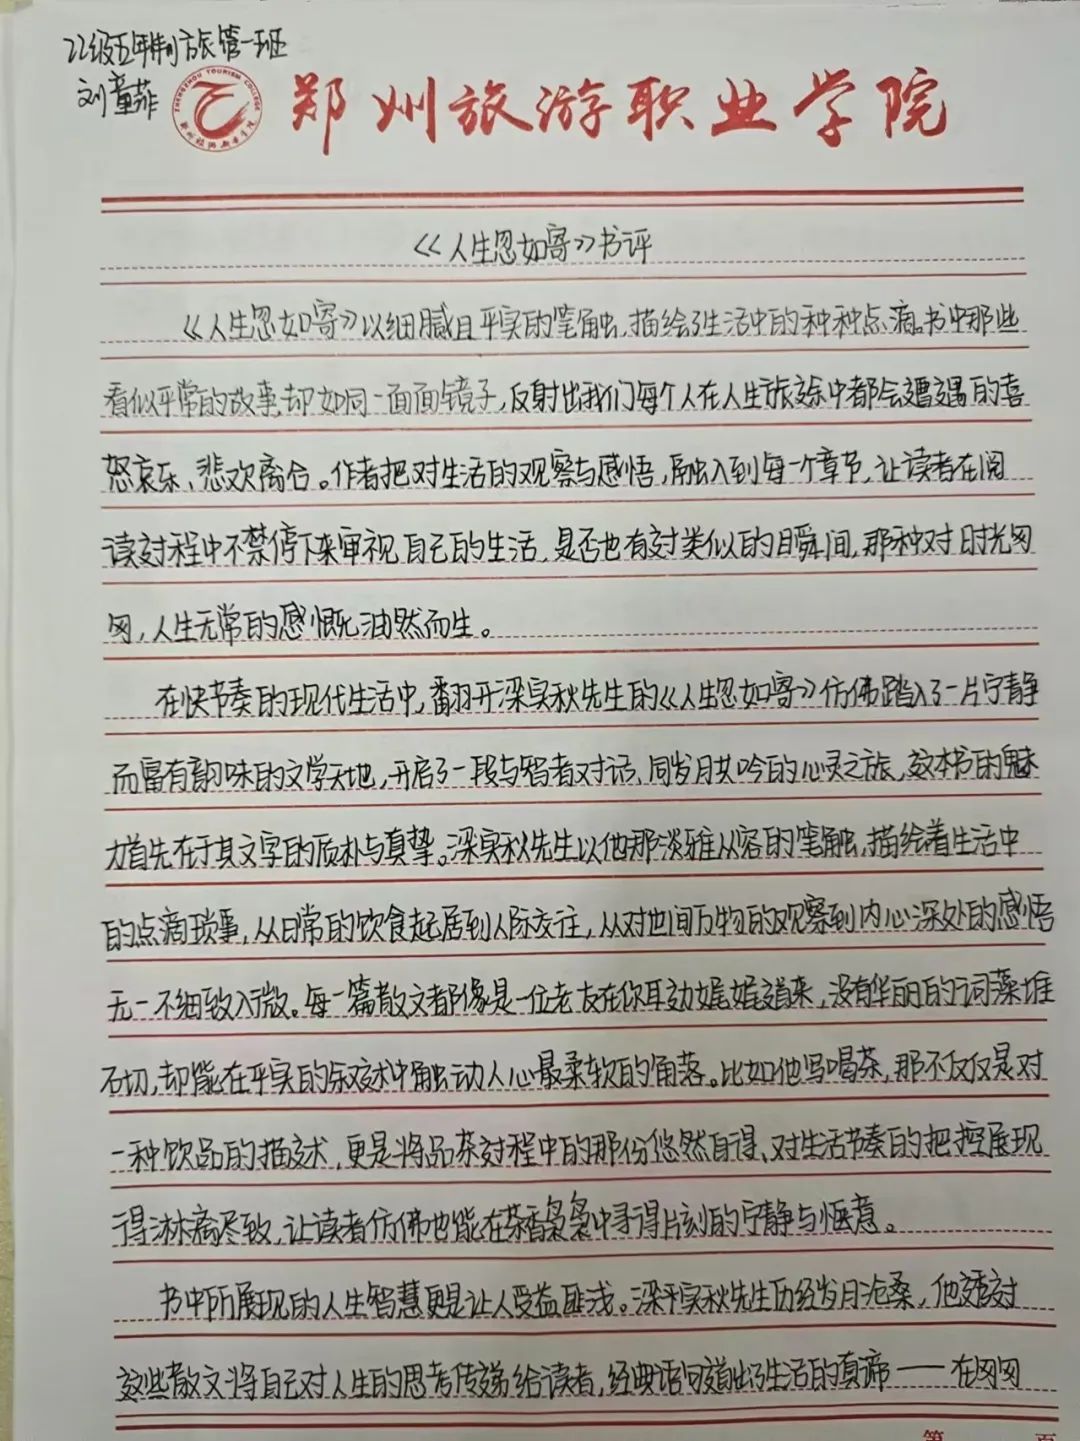 22级五年制旅管一班
刘童菲
ZHENGZHOU TOURISM COLLEGE
郑州旅游职业学院
郑州旅游职业学院
《人生忽如寄》书评
《人生忽如寄》以细腻且平实的笔触,描绘了生活中的种种点滴。书中那些
看似平常的故事,却如同一面面镜子,反射出我们每个人在人生旅途中都会遭遇的喜
怒哀乐、悲欢离合。作者把对生活的观察与感悟,融入到每一个章节,让读者在阅
读过程中不禁停下来审视自己的生活,是否也有过类似的瞬间,那种对时光匆
匆,人生无常的感慨油然而生。
在快节奏的现代生活中,翻开梁实秋先生的《人生忽如寄》仿佛踏入了一片宁静
而富有韵味的文学天地,开启了一段与智者对话、同岁月共吟的心灵之旅,这本书的魅
力首先在于其文字的质朴与真挚。梁实秋先生以他那淡雅从容的笔触,描绘着生活中
的点滴琐事,从日常的饮食起居到人际交往,从对世间万物的观察到内心深处的感悟
无一不细致入微。每一篇散文都像是一位老友在你耳边娓娓道来,没有华丽的词藻堆
砌,却能在平实的叙述中触动人心最柔软的角落。比如他写喝茶,那不仅仅是对
一种饮品的描述,更是将品茶过程中的那份悠然自得、对生活节奏的把控展现
得淋漓尽致,让读者仿佛也能在茶香袅袅中寻得片刻的宁静与惬意。
书中所展现的人生智慧更是让人受益匪浅。梁实秋先生历经岁月沧桑,他透过
这些散文将自己对人生的思考传递给读者,经典语句道出了生活的真谛——在匆匆
第 页